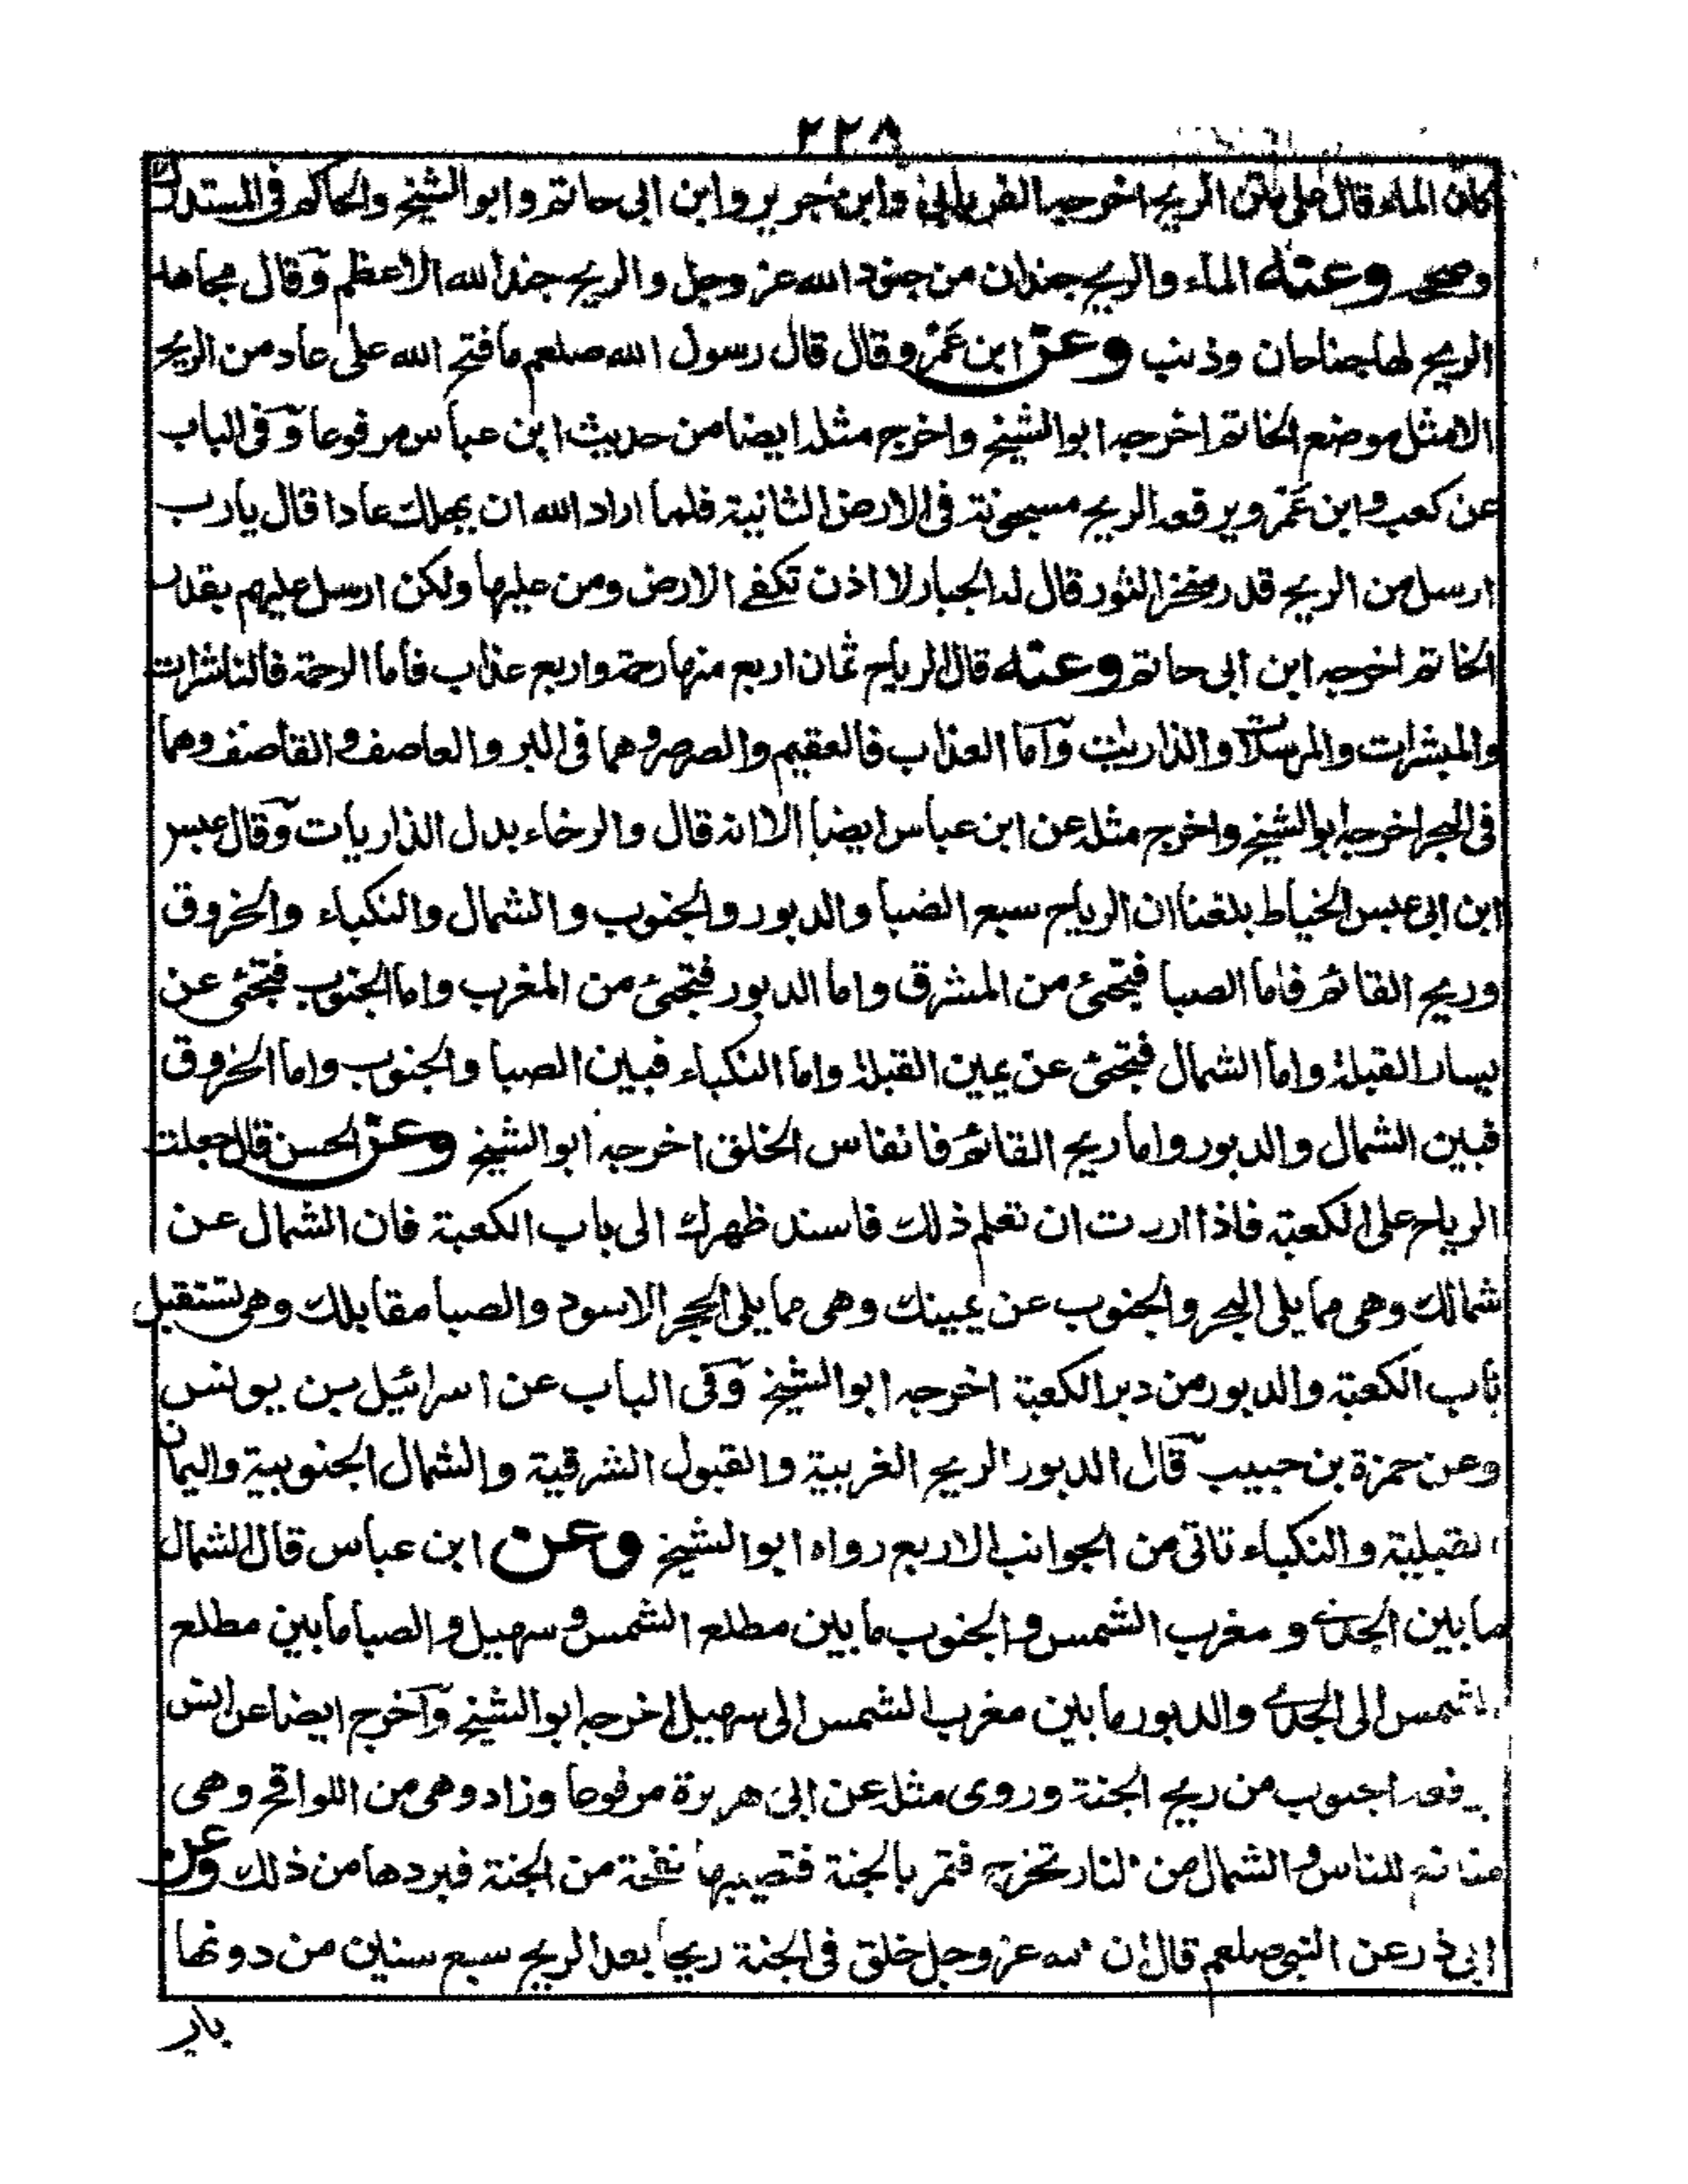 ٢٢٨
كان الماء قال على متن الريح اخرجه الفريابى وابن جرير وابن ابى حاتم وابو الشيخ والحاكم فى المستدرك
وصححه وعنه الماء والريح جندان من جنود الله عز وجل والريح جند الله الاعظم وقال مجاهد
الريح لها جناحان وذنب وعن ابن عمرو قال قال رسول الله صلعم ما فتح الله على عاد من الريح
الا مثل موضع الخاتم اخرجه ابو الشيخ واخرج مثله ايضا من حديث ابن عباس مرفوعا وفى الباب
عن كعب وابن عمرو يرفعه الريح مسجونة فى الارض الثانية فلما اراد الله ان يهلك عادا قال يا رب
ارسل من الريح قدر منخر الثور قال له الجبار لا اذن تكفى الارض ومن عليها ولكن ارسل عليهم بقدر
الخاتم اخرجه ابن ابى حاتم وعنه قال الرياح ثمان اربع منها رحمة واربع عذاب فاما الرحمة فالناشرات
والمبشرات والمرسلات والذاريات واما العذاب فالعقيم والصرصر وهما فى البر والعاصف والقاصف وهما
فى البحر اخرجه ابو الشيخ واخرج مثله عن ابن عباس ايضا الا انه قال والرخاء بدل الذاريات وقال عيسى
ابن ابى عيسى الخياط بلغنا ان الرياح سبع الصبا والدبور والجنوب والشمال والنكباء والخروق
وريح القائم فاما الصبا فتجئ من المشرق واما الدبور فتجئ من المغرب واما الجنوب فتجئ عن
يسار القبلة واما الشمال فتجئ عن يمين القبلة واما النكباء فبين الصبا والجنوب واما الخروق
فبين الشمال والدبور واما ريح القائم فانفاس الخلق اخرجه ابو الشيخ وعن الحسن قال جعلت
الرياح على الكعبة فاذا اردت ان تعلم ذلك فاسند ظهرك الى باب الكعبة فان الشمال عن
شمالك وهى مما يلى الحجر والجنوب عن يمينك وهى مما يلى الحجر الاسود والصبا مقابلك وهى تستقبل
باب الكعبة والدبور من دبر الكعبة اخرجه ابو الشيخ وفى الباب عن اسرائيل بن يونس
وعن حمزة بن حبيب قال الدبور الريح الغربية والقبول الشرقية والشمال الجنوبية واليمان
القبلية والنكباء تاتى من الجوانب الاربع رواه ابو الشيخ وعن ابن عباس قال الشمال
ما بين الجدى ومغرب الشمس والجنوب ما بين مطلع الشمس وسهيل والصبا ما بين مطلع
الشمس الى الجدى والدبور ما بين مغرب الشمس الى سهيل اخرجه ابو الشيخ واخرج ايضا عن انس
يرفعه الجنوب من ريح الجنة وروى مثله عن ابى هريرة مرفوعا وزاد وهى من اللواقح وهى
للناس والشمال من النار تخرج فتمر بالجنة فتصيبها نفخة من الجنة فبردها من ذلك وعن
ابى ذر عن النبى صلعم قال ان الله عز وجل خلق فى الجنة ريحا بعد الريح سبع سنين من دونها
باب